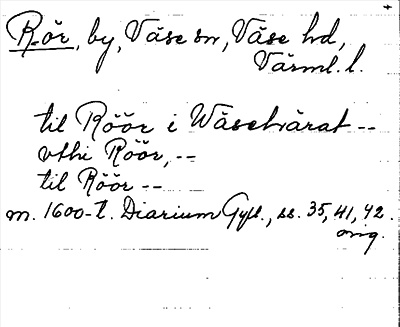 Rör, by, Väse sn, Väse hd,
Värml. l.
til Röör i Wäsehärat --
vthi Röör, --
til Röör --
m. 1600-t. Diarium Gyll., ss. 35, 41, 42.
orig.